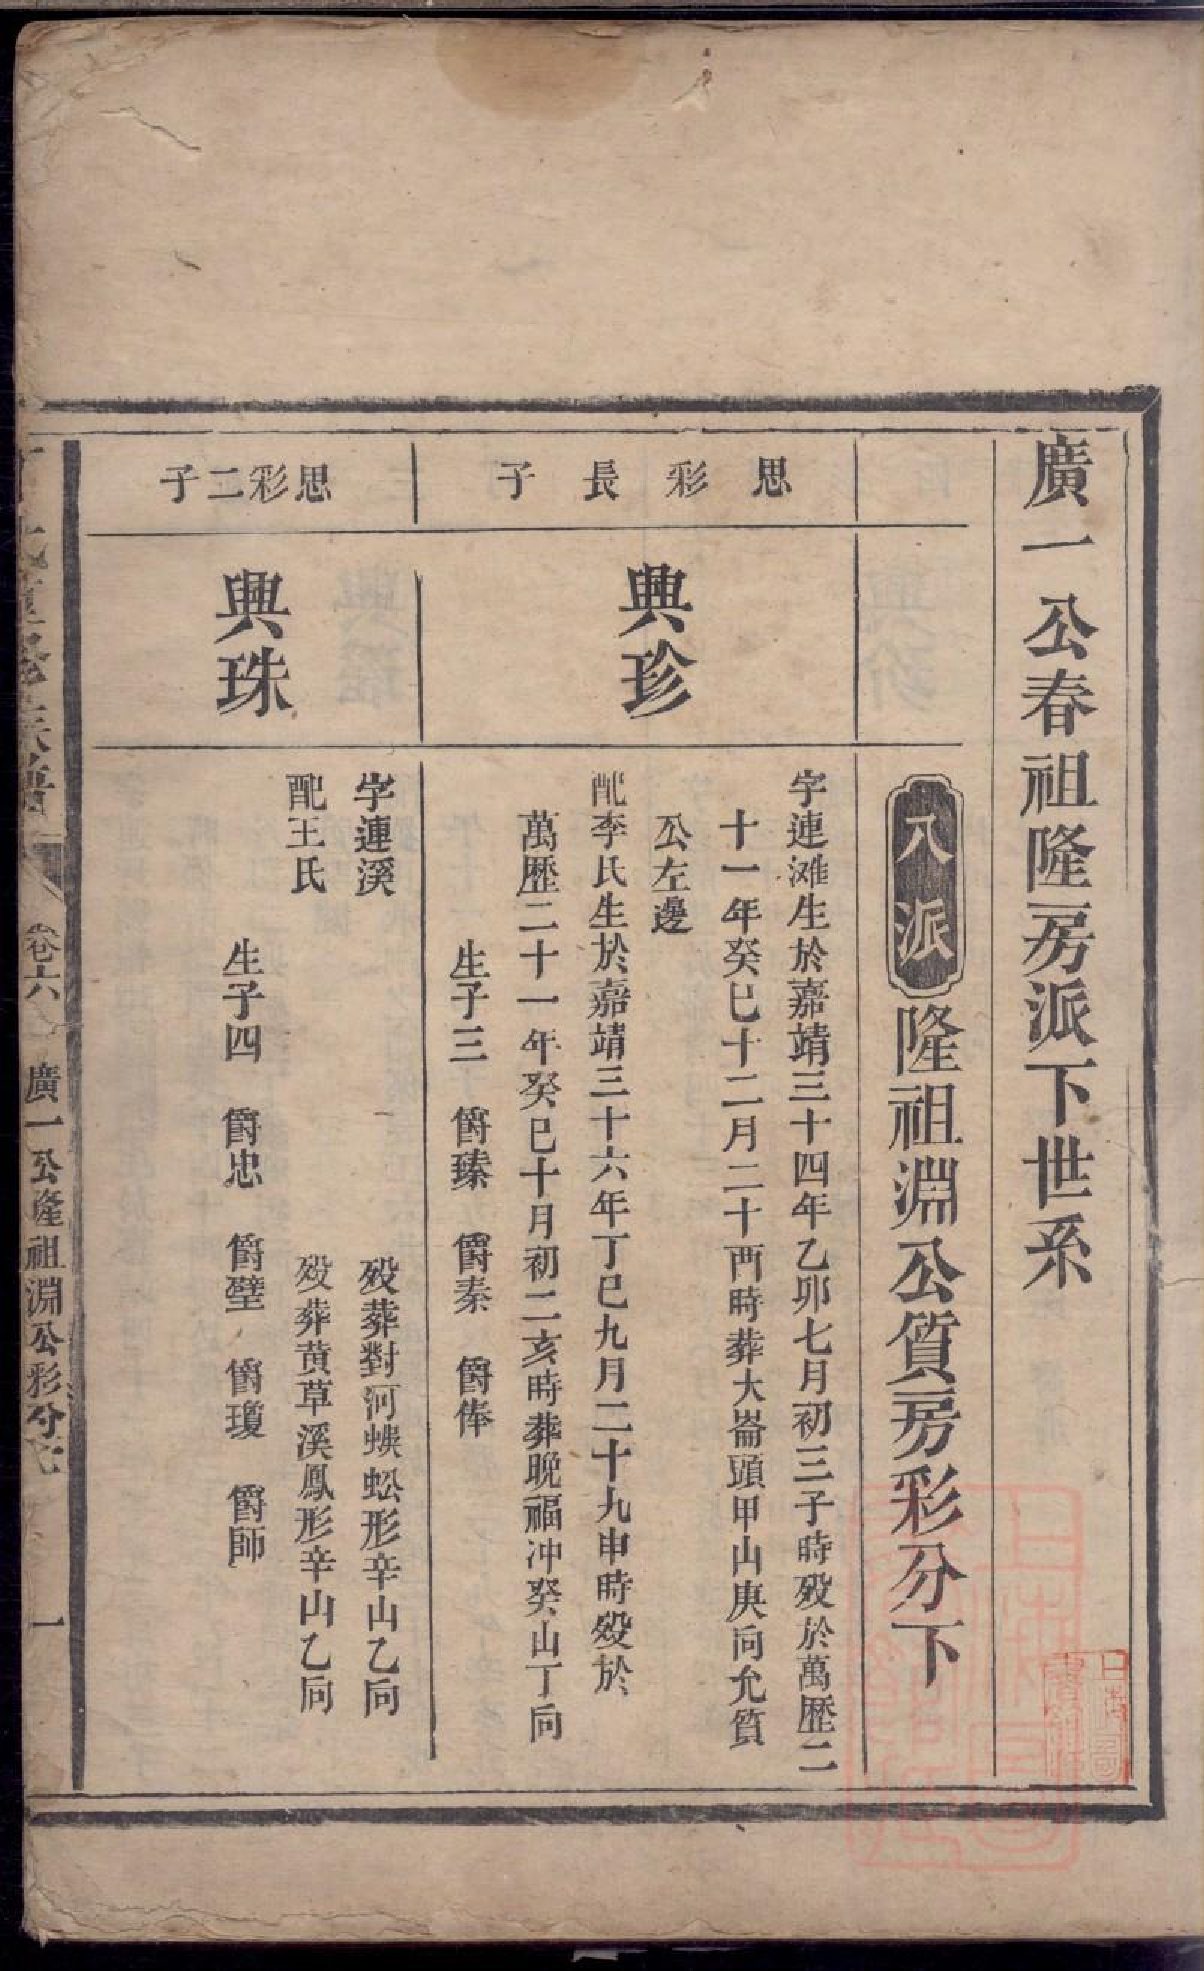 廣一公春祖隆房派下世系
八派
隆祖淵公質房彩分下
思彩長子
興珍
字連滩生於嘉靖三十四年乙卯七月初三子時殁於萬歷二
十一年癸巳十二月二十酉時葬大崙頭甲山庚向允質
公左邊
配李氏生於嘉靖三十六年丁巳九月二十九申時殁於
萬歷二十一年癸巳十月初二亥時葬晚福冲癸山丁向
生子三 爵臻 爵秦 爵俸
思彩二子
興珠
字連溪 殁葬對河蜈蚣形辛山乙向
配王氏 殁葬黄草溪鳳形辛山乙向
生子四 爵忠 爵璧 爵瓊 爵師
卷六 廣一公隆祖淵公彩分 一